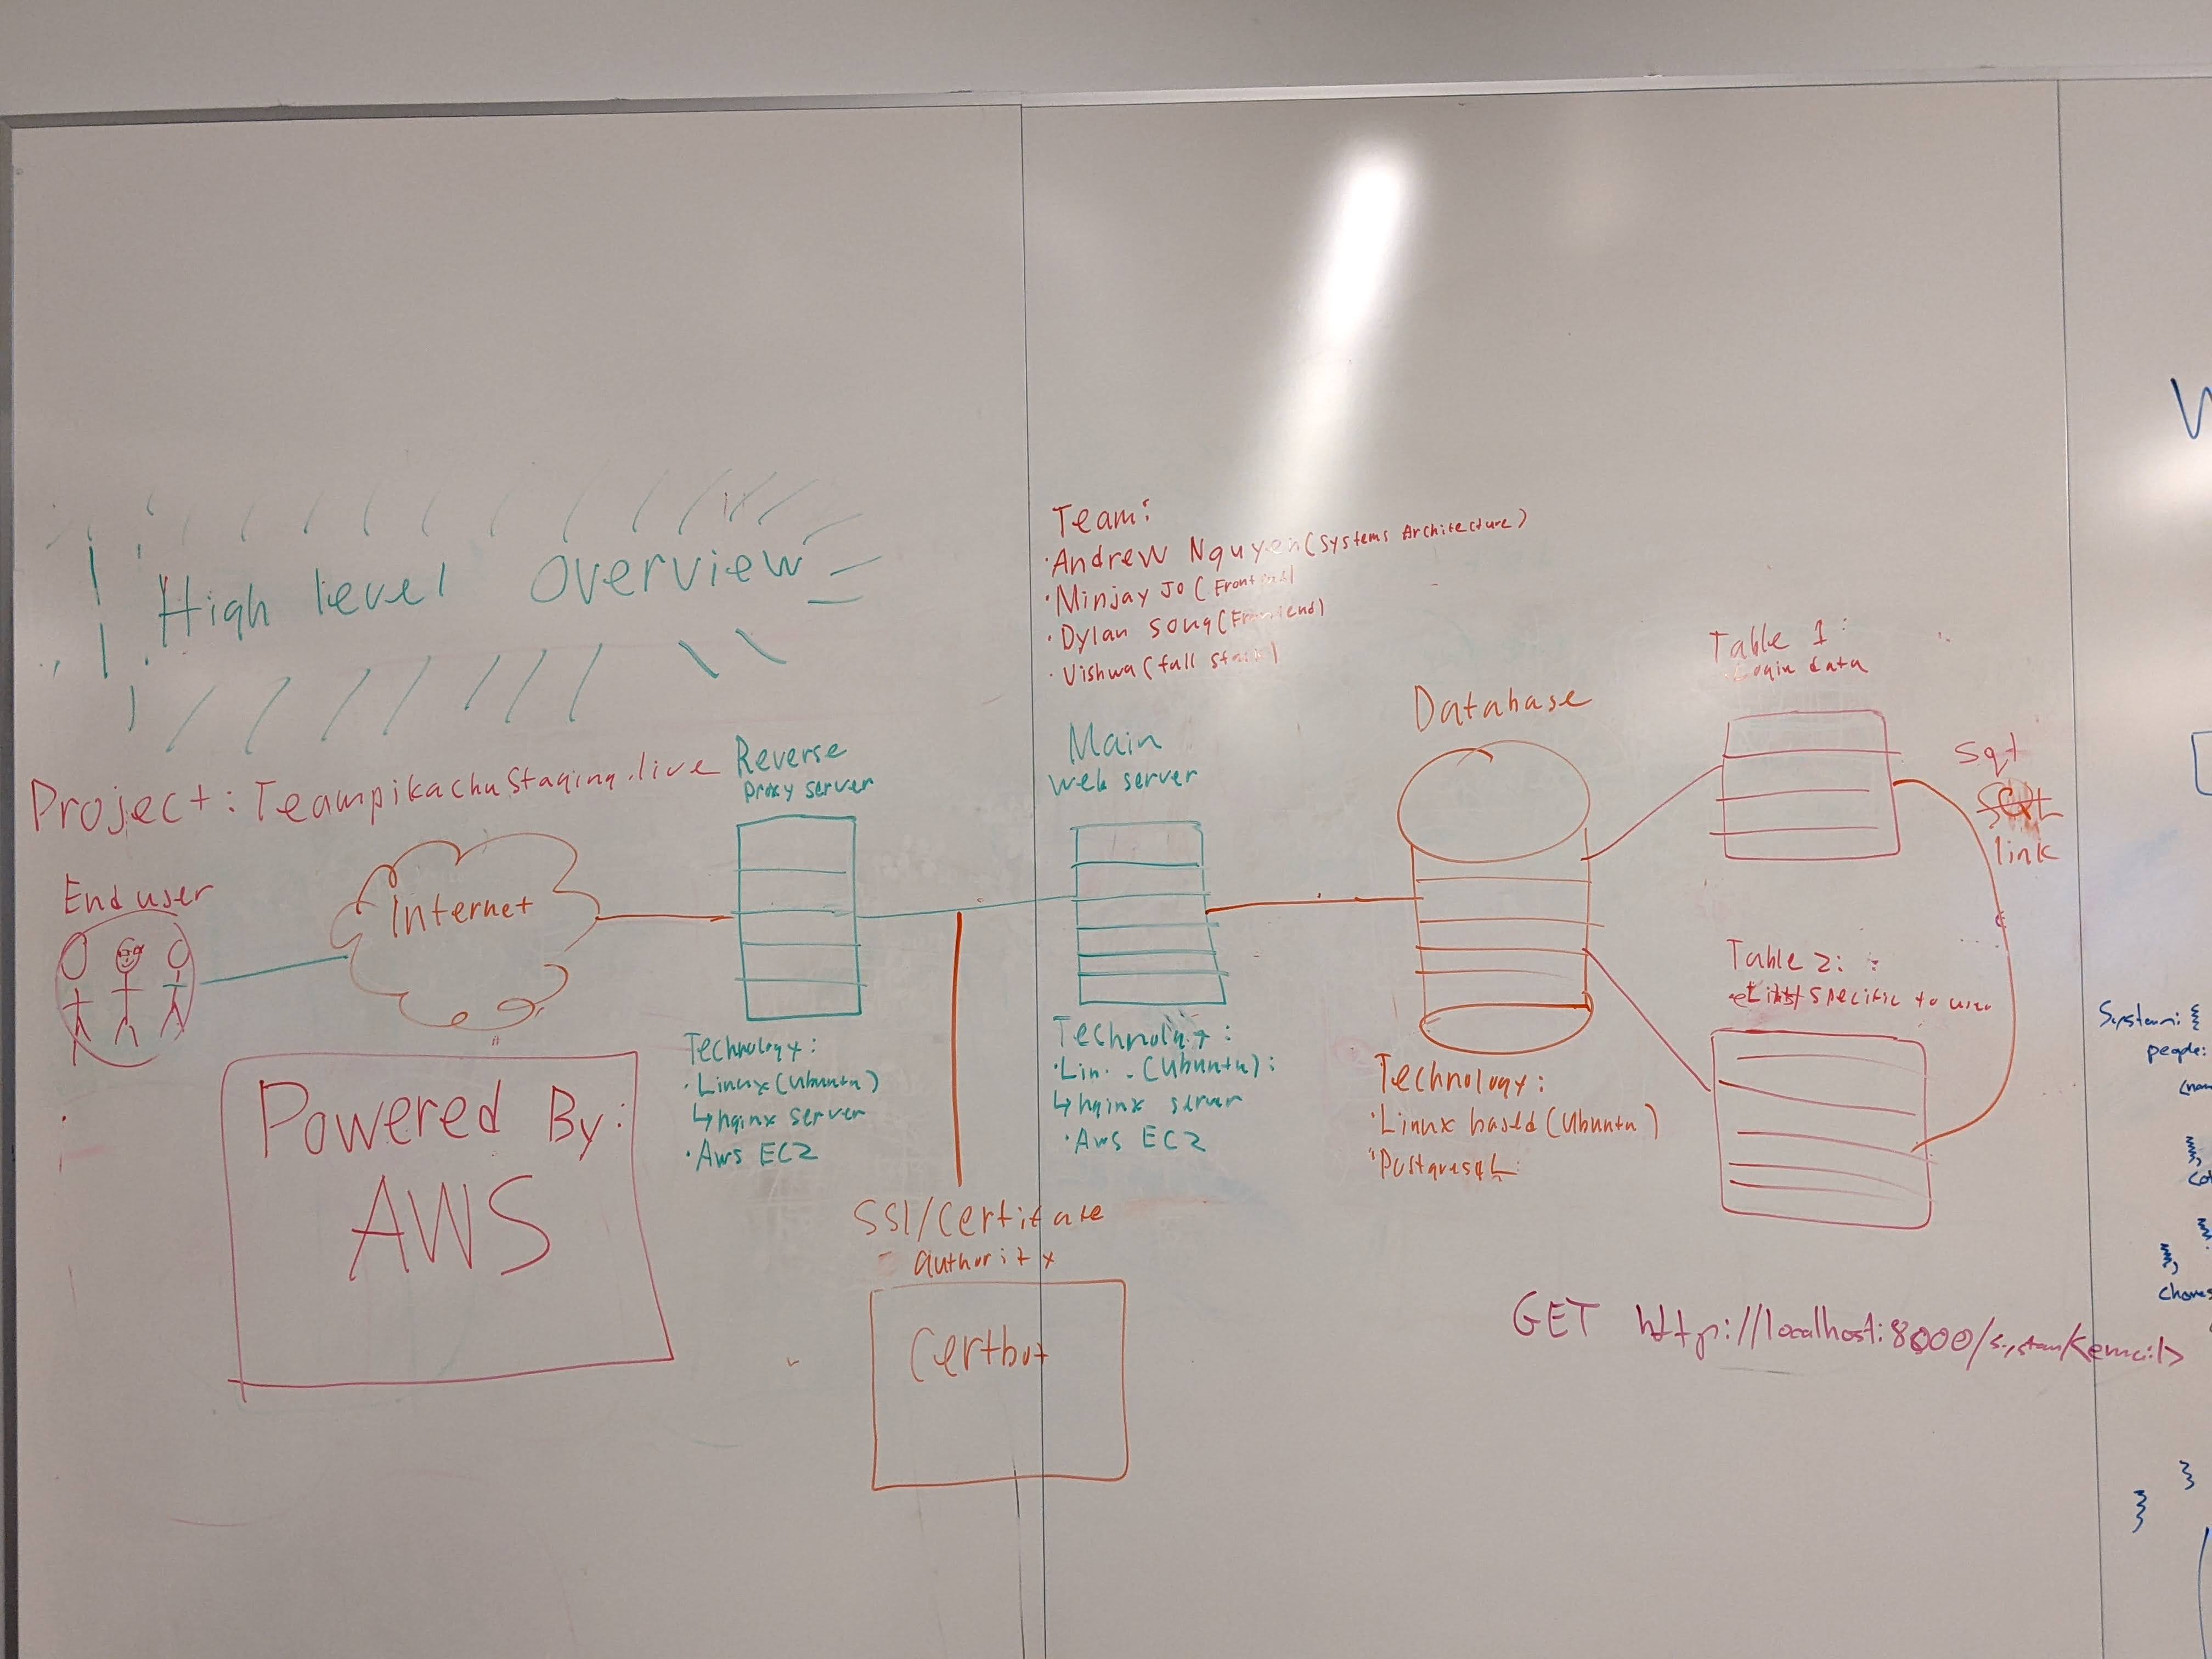 High level Overview
Project: Teampikachustaging.live
Team:
·Andrew Nguyen (Systems Architecture)
·Minjay Jo (Frontend)
·Dylan Song (Frontend)
·Vishwa (full stack)
End user
Internet
Reverse
Proxy server
Technology:
·Linux (Ubuntu)
↳nginx server
·Aws EC2
Main
web server
Technology:
(Ubuntu):
↳nginx server
·Aws EC2
Database
Technology:
·Linux based (Ubuntu)
·PostgresqL
Table 1:
Login data
Table 2:
specific to user
Sql
SQL
link
Powered By:
AWS
SSl/Certificate
authority
Certbot
GET http://localhost:8000/system/<email>
System: {
people:
},
}
}